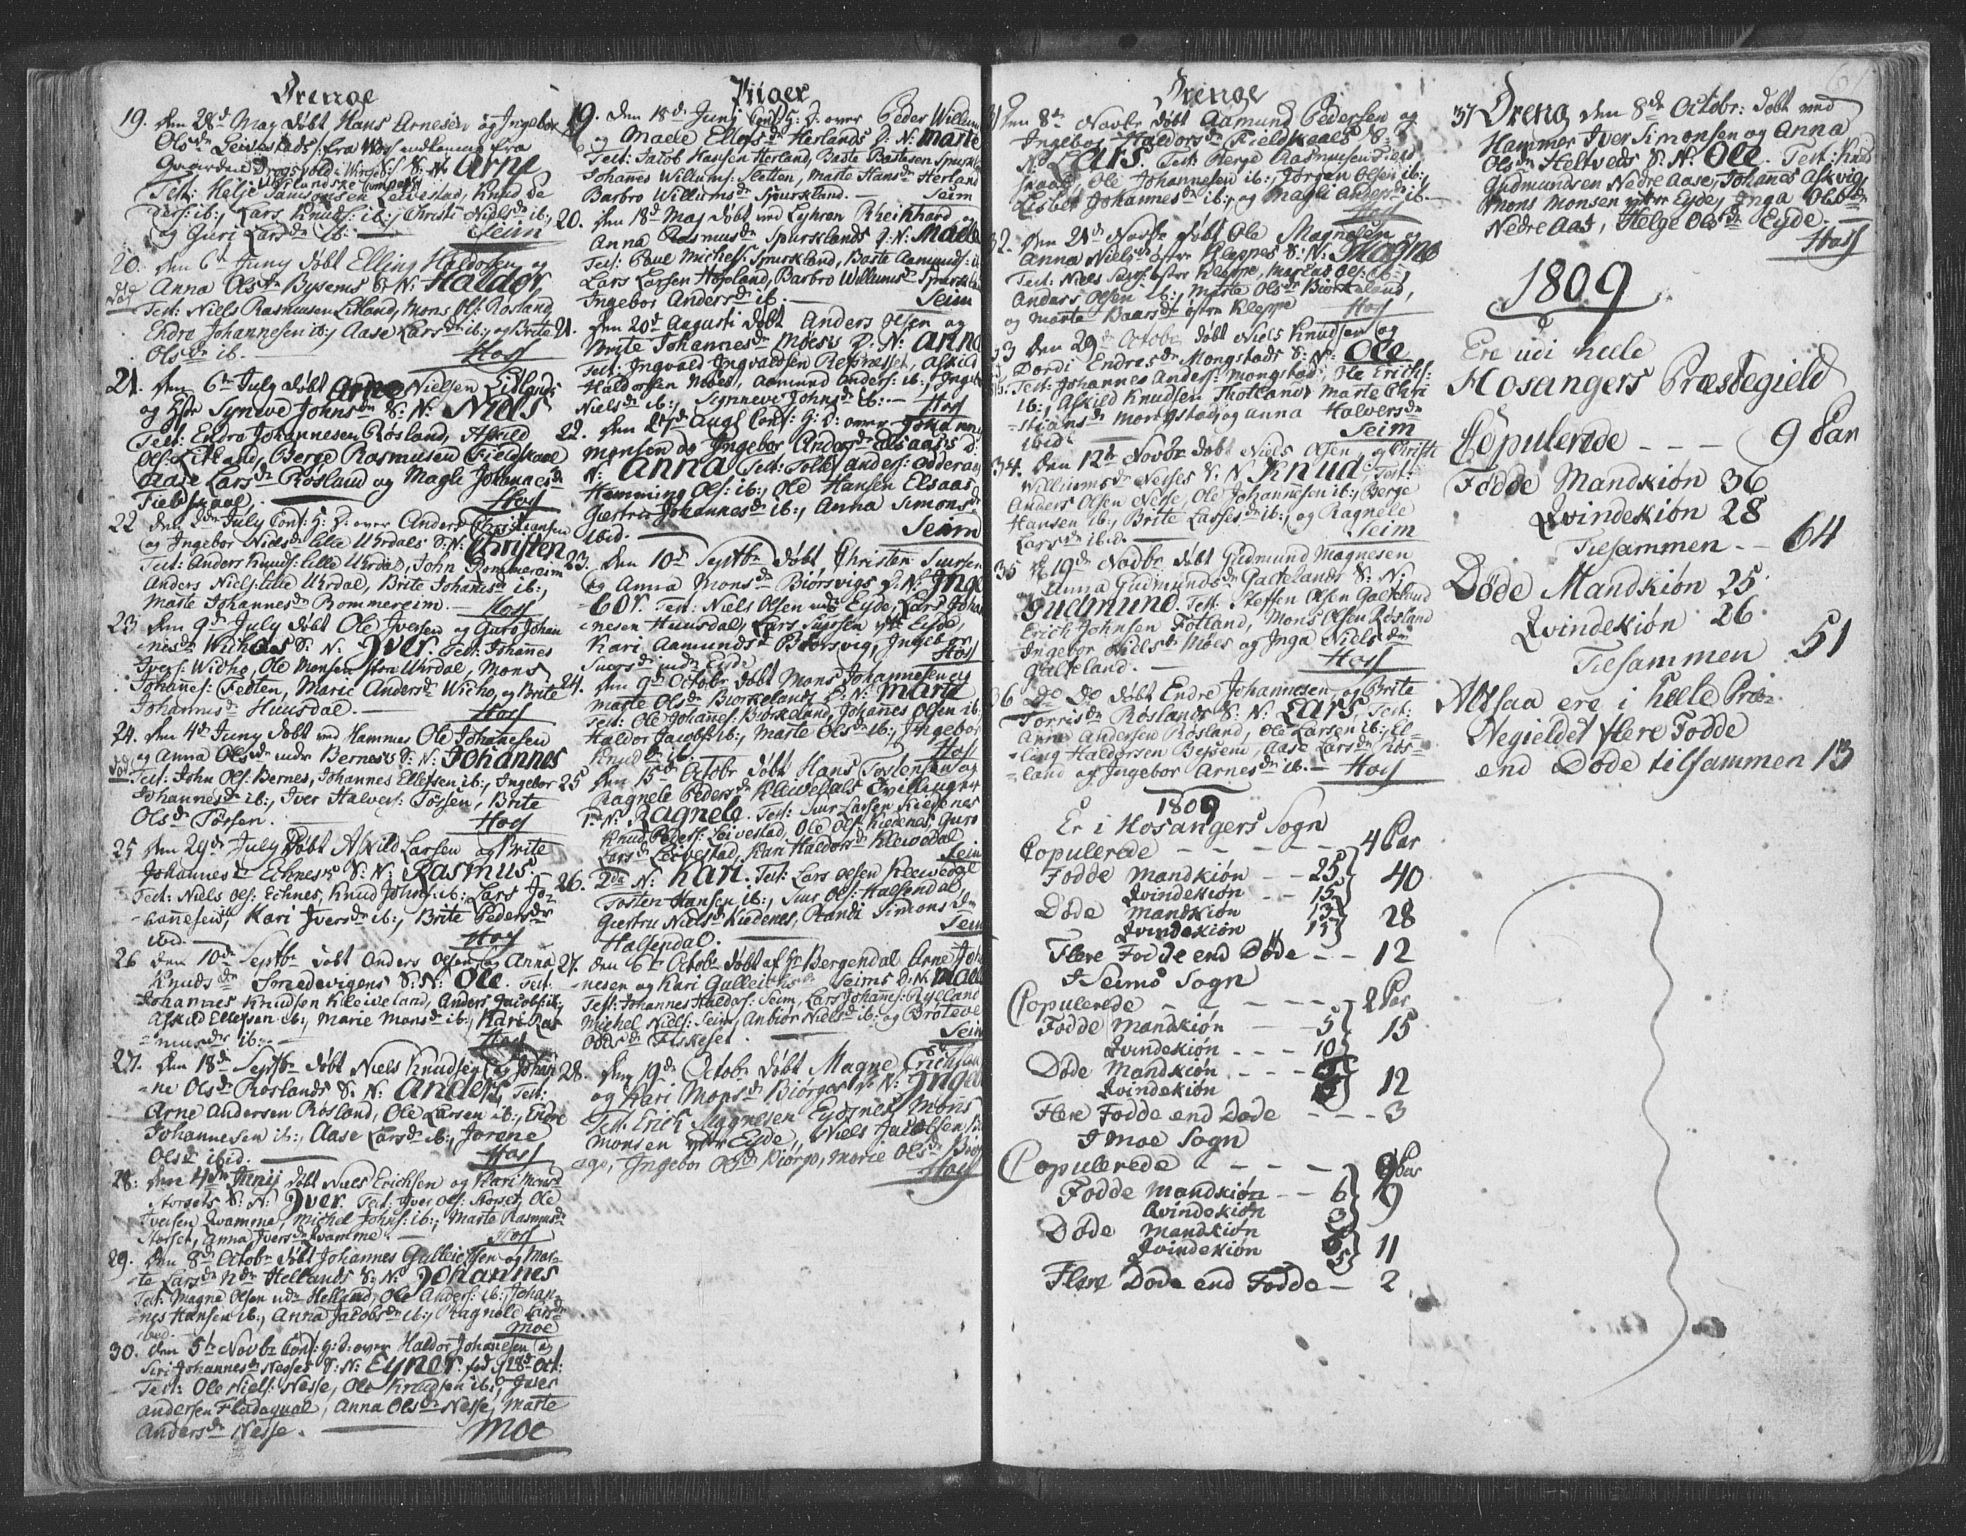 Drenge
19. den 28d May døbt Hans Arnesen og Ingebor
Ols dr Leivestads: fra
Gaardene S: N: Arne
Test: Helje Samsonsen Leivestad, Knud
ib:, Lars Knuds: ib:, Christi Niels dr ib:,
og Guri Lars dr ib: Seim
20. den 6te Juny døbt Elling Haldorsen og
Anna Ols dr Bysems S: N: Haldor
Test: Niels Rasmusen Litland, Mons Ols: Røsland
Endre Johannesen ib:, Aase Lars dr ib:, og Brite
Ols dr ib. Hos
21. den 6te July døbt Arne Nielsen Litlands
og Hstr Synneve Johns dr S: N: Niels
Test: Endre Johannesen Røsland, Askild
Ols: Litland, Berge Rasmusen Fieldskaal
Aase Lars dr Røsland og Magli Johannes dr
Fieldskaal. Hos
22 den July Conf: H: D: over Anders Christiansen
og Ingebor Niels dr Lille Uhrdals S: N: Christen
Test: Anders Knuds: Lille Uhrdal, John Rommereim
Anders Niels: Lille Uhrdal, Brite Johannes dr ib:,
Marte Johannes dr Rommereim. Hos
23 den 9de July døbt Ole Iversen og Guro Johan
nes dr Wichoes S: N: Iver. Test: Johanes
Ivers: Wicho, Ole Monsen fra Uhrdal, Mons
Johannes: Fedten, Marie Anders dr Wicho, og Brite
Johannis dr Huusdal. Hos
24. den 4de Juny døbt ved Hammer Ole Johanesen
og Anna Ols dr nedre Bernes S: N: Johannes
død Test: John Ols: Bernes, Johannes Ellefsen ib:, Ingebor
Johannes dr ib:, Iver Halvers: Tøssen, Brite
Ols dr Tøssen. Hos
25 den 29de July Døbt Askild Larsen og Brite
Johannes dr Echnes S: N: Rasmus.
Test: Niels Ols: Echnes, Knud Johns: ib:, Lars Jo-
hannesen, Kari Ivers dr ib:, Brite Peders dr
ibid. Hos
26 den 10de Septbr døbt Anders Olsen og Anna
Knuds dr Smedevigens S: N: Ole. Test:
Johannes Knudsen Kleiveland, Anders Jacobs: ib:,
Askild Ellefsen ib:, Marie Mons dr ib:, Kari Ras
mus dr ib:. Hos
27. den 18de Septbr døbt Niels Knudsen og Johan
ne Ols dr Røslands S: N: Anders, Test:
Arne Andersen Røsland, Ole Larsen ib:, Endre
Johannesen ib:, Aase Lars dr ib:, Jorene
Ols dr ibid. Hos
28. den 4de Junij døbt Niels Erichsen og Kari Mons d
Storsets S: N: Iver. Test: Iver Ols: Storset, Ole
Iversen Qvamme, Michel Johns: ib:, Marte Rasmus dr
Storset, Anna Ivers dr Qvamme. Hos
29. den 8de Octobr døbt Johannes Gulleichsen og Mar-
te Lars dr ndr Hellands S: N: Johannes
Test: Magne Olsen ndr Helland, Ole Anders: ib:, Johan
nes Hansen ib:, Anna Jacobs dr ib:, Ragnele Lars dr
ibid. Moe
30. den 5te Novbr Conf: H: D: over Haldor Johanesen og
Siri Johannes dr Nesses S: N: Eyner. fød 28de Oct:
Test: Ole Niels: Nesse, Ole Knudsen ib:,
Andersen Fladaqual, Anna Ols dr Nesse, Marte
Anders dr Nesse. Moe
Piiger
19. den 18de Juny Conf: H: D: over Peder Willum
og Maele Ellefs dr Herlands D: N: Marte
Test: Jacob Hansen Herland, Baste Bastesen Spurkl
Johanes Willums: Sletten, Marte Hans dr Herland
Barbro Willums dr Spurkland. Seim
20. den 18de May døbt ved Lyhren Rheinhard og
Anna Rasmus dr Spurklands D: N: Maele
Test: Poul Michels: Spurkland, Baste Aamunds: ib
Lars Larsen Hopland, Barbro Willums dr Spurkl
Ingebor Anders dr ib. Seim
21. den 20de Augusti døbt Anders Olsen og
Brite Johannes dr Moes D: N: Anna
Test: Ingvald Ingvaldsen Refsnesset, Askild
Haldorsen Moes, Aamund Anders: ib:, Ingeb
Niels dr ib:, Synneve Johns dr ib: Hos
22. den 27de Augl Conf: H: D: over Johanne
Monsen og Ingebor Anders dr Elsaas D:
N: Anna Test: Anders: Odderaas
Hemming Ols: ib:, Ole Hansen Elsaas
Giertru Johannes dr ib:, Anna Simons dr
ibid. Seim
23. den 10de Septbr døbt Christen Siursen
og Anna Mons dr Biørsvigs D: N: Inge
bor. Test: Niels Olsen ndr Eyde, Lars Johan
nesen Huusdal, Lars Siursen ystr Eyde,
Kari Aamunds dr Biørsvig, Ingebor
ndr Eyde Hos
24. den 9de Octobr døbt Mons Johannesen og
Marte Ols dr Biørkelands D: N: Marte
Test: Ole Johannes: Biørkeland, Johannes Olsen ib:
Haldor Jacobs: ib:, Marte Ols dr ib:, Ingebor
Knuds dr ib. Hos
25 den 15de Octobr døbt Hans Tostensen og
Ragnele Peders dr Kleivedals Tvillinger
1te N: Ragnele. Test: Siur Larsen Kiedenes
Knud Peders: Leivestad, Ole Ols: Kiedenes, Guro
Lars dr Leivestad, Kari Haldors dr Kleivedal
Seim
26. 2de N: Kari. Test: Lars Olsen Kleivedal
Tosten Hansen ib:, Siur Ols: Halsendal,
Giertru Niels dr Kiedenes, Randi Simons dr
Halsendal. Seim
27. den 6te Octobr døbt af Hr Bergendal Arne Joha
nesen og Kari Gulleichs dr Seims D: N: Maele
Test: Johannes Haldors: Seim, Lars Johannes: Rylland
Michel Niels: Seim, Anbior Niels dr ib: og Broteve
Odds dr Fiskeset. Seim
28. den 19de Octobr døbt Magne Erichsen
og Kari Mons dr Biørges D: N: Ingeb
Test: Erich Magnesen Eydsnes, Mons
Monsen ystr Eyde, Niels Jacobsen
Ingebor Ols dr Biørgo, Marie Ols dr Biør
Hos
Drenge
31. Den 8de Novbr døbt Aamund Pedersen og
Ingebor Haldors dr Fieldskaals S:
N: Lars. Test: Berge Rasmusen Field
skaal, Ole Johannesen ib:, Jørgen Olsen ib:,
Lisbet Johannes dr ib:, og Magli Anders dr ib.
Hos
32. den 21de Novbr døbt Ole Magnesen og
Anna Niels dr østre Kleppes S: N: Magne
Test: Niels østre Kleppe, Marcus Ols: ib:,
Anders Olsen ib:, Marte Ols dr Biørkeland,
og Marte Baars dr østre Kleppe Hos
33 den 29de Octobr døbt Niels Knudsen og
Dordi Endres dr Mongstads S: N: Ole
Test: Johannes Anders: Mongstad, Ole Erichs:
ib:, Askild Knudsen Totland, Marte Chri
stians dr Mongstad, og Anna Halvers dr
ibid: Seim
34. den 12te Novbr døbt Niels Olsen og Christi
Willums dr Neses S: N: Knud, Test:
Anders Olsen Nesse, Ole Johannesen ib:, Berge
Hansen ib:, Brite Lasses dr ib:, og Ragnele
Lars dr ibid. Seim
35 d 19de Novbr døbt Gudmund Magnesen
og Anna Gudmunds dr Galtelands S: N:
Gudmund. Test: Steffen Olsen Galteland
Erich Johnsen Totland, Mons Olsen Røsland
Ingebor Niels dr Moes og Inga Niels dr
Galteland. Hos
36 De Do døbt Endre Johannesen og Brite
Torris dr Røslands S: N: Lars, Test:
Arne Andersen Røsland, Ole Larsen ib:, El-
ling Haldorsen Bessem, Aase Lars dr Røs-
land og Ingebor Arnes dr ib. Hos
1809
Er i Hosangers Sogn
Copulerede - - - - 4 Par
Fødde Mandkiøn - - 25 } 40
Qvindekiøn - - 15
Døde Mandkiøn 13 } 28
Qvindekiøn 15
Flere Fødde end Døde - - 12
I Seims Sogn
Copulerede - - - - 2 Par
Fødde Mandkiøn - - 5 } 15
Qvindekiøn - - 10
Døde Mandkiøn } 12
Qvindekiøn
Flere Fødde end Døde - - - 3
I Moe Sogn
Copulerede - - - - Par
Fødde Mandkiøn - - 6 } 9
Qvindekiøn 3
Døde Mandkiøn 6 } 11
Qvindekiøn 5
Flere Døde end Fødde - 2
37 Dreng den 8de Octobr: døbt ved
Hammer Iver Simonsen og Anna
Ols dr Heltveds S: N: Ole. Test: Knud
Gudmundsen Nedre Aase, Johanes Askvig,
Mons Monsen ystre Eyde, Inga Ols dr
Nedre Aas, Helge Ols dr Eyde.
Hos
1809
Er udi heele
Hosangers Præstegield
Copulerede - - - 9 Par
Fødde Mandkiøn 36
Qvindekiøn 28
Tilsammen - - 64
Døde Mandkiøn 25
Qvindekiøn 26
Tilsammen 51
Altsaa ere i heele Præ-
stegieldet flere Fødde
end Døde tilsammen 13